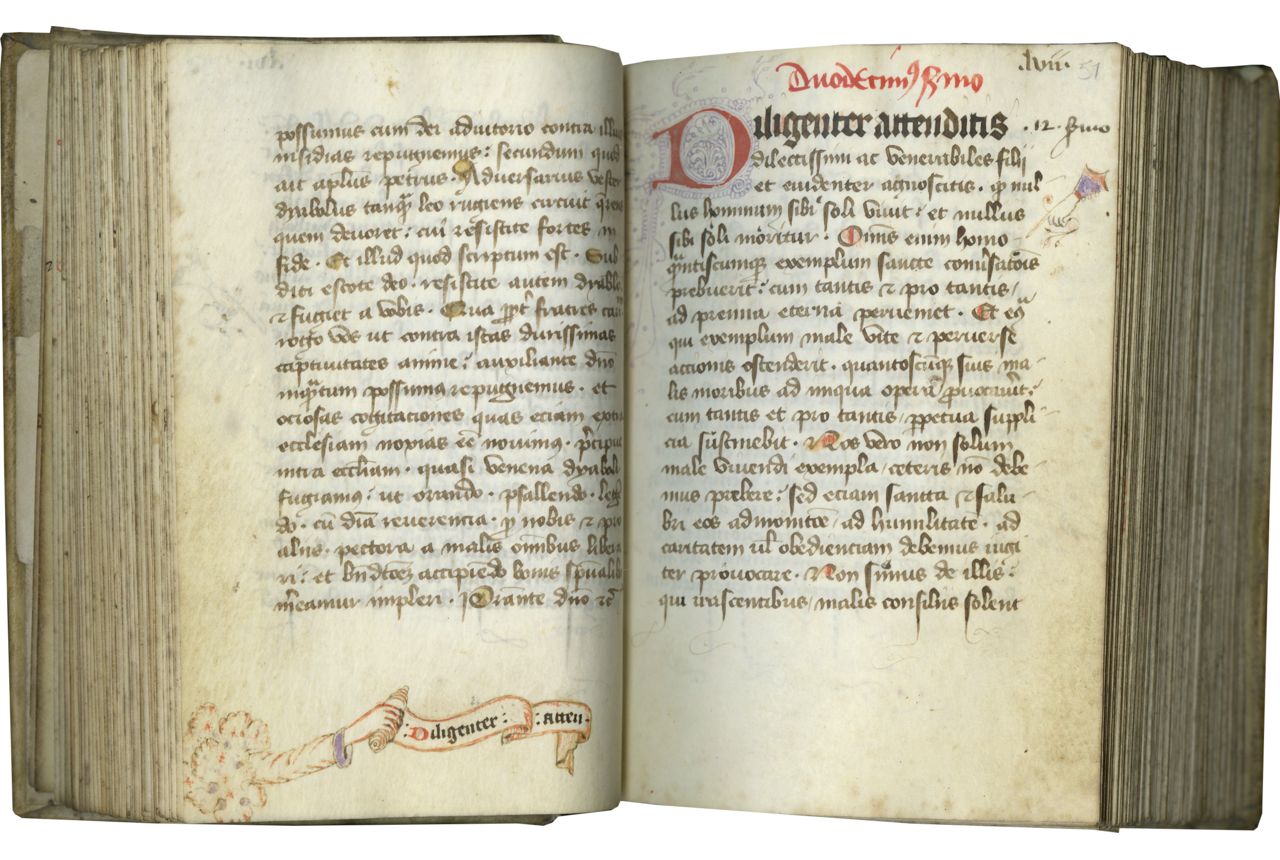 possumus cum dei adiutorio contra illius
insidias repugnemus: secundum quod
ait aplus petrus. Adversarius vester
dyabolus tanq̃ leo rugiens circuit querens
quem devoret: cui resistite fortes in
fide. Et illud quod scriptum est. Sub
diti estote deo. resistite autem dyabolo
et fugiet a vobis. fratres
rogo vos ut contra istas durissimas
captivitates anime: auxiliante dno
inq̃tum possumus repugnemus. et
ociosas cogitationes quas eciam extra
ecclesiam noxias eē novimus. p̃cipue
intra eccliam. quasi venena dyaboli
fugiamus: ut orando. psallendo. legen
do. cū reverencia. nobis et pro
aliis. pectora a malis omibus libera
ri: et accipiendo bonis
m̃eamur impleri. P̃stante dno rc̃
Diligenter: atten.
lviii. 51
Duodecimꝰ s̃mo
Diligenter attenditis
.12. s̃mo
dilectissimi ac venerabiles filii
et evidenter agnoscitis. qp nul
lus hominum sibi soli vivit: et nullus
sibi soli moritur. Omis enim homo
q̃ntiscumqꝫ exemplum sancte
prebuerit: cum tantis et pro tantis/
ad premia eterna perveniet. Et
qui exemplum male vite et perverse
accionis ostenderit. quantoscumqꝫ suis ma
lis moribus ad iniqua opera
cum tantis et pro tantis/ ꝑpetua suppli
cia sustinebit. Nos vero non solum
male vivendi exempla/ ceteris nō debe
mus prebere: sed eciam sancta et salu
bri eos ad humilitatē. ad
caritatem vl obedienciam debemus iugi
ter provocare. Non simus de illis:
qui irascentibus/ malis consiliis solent